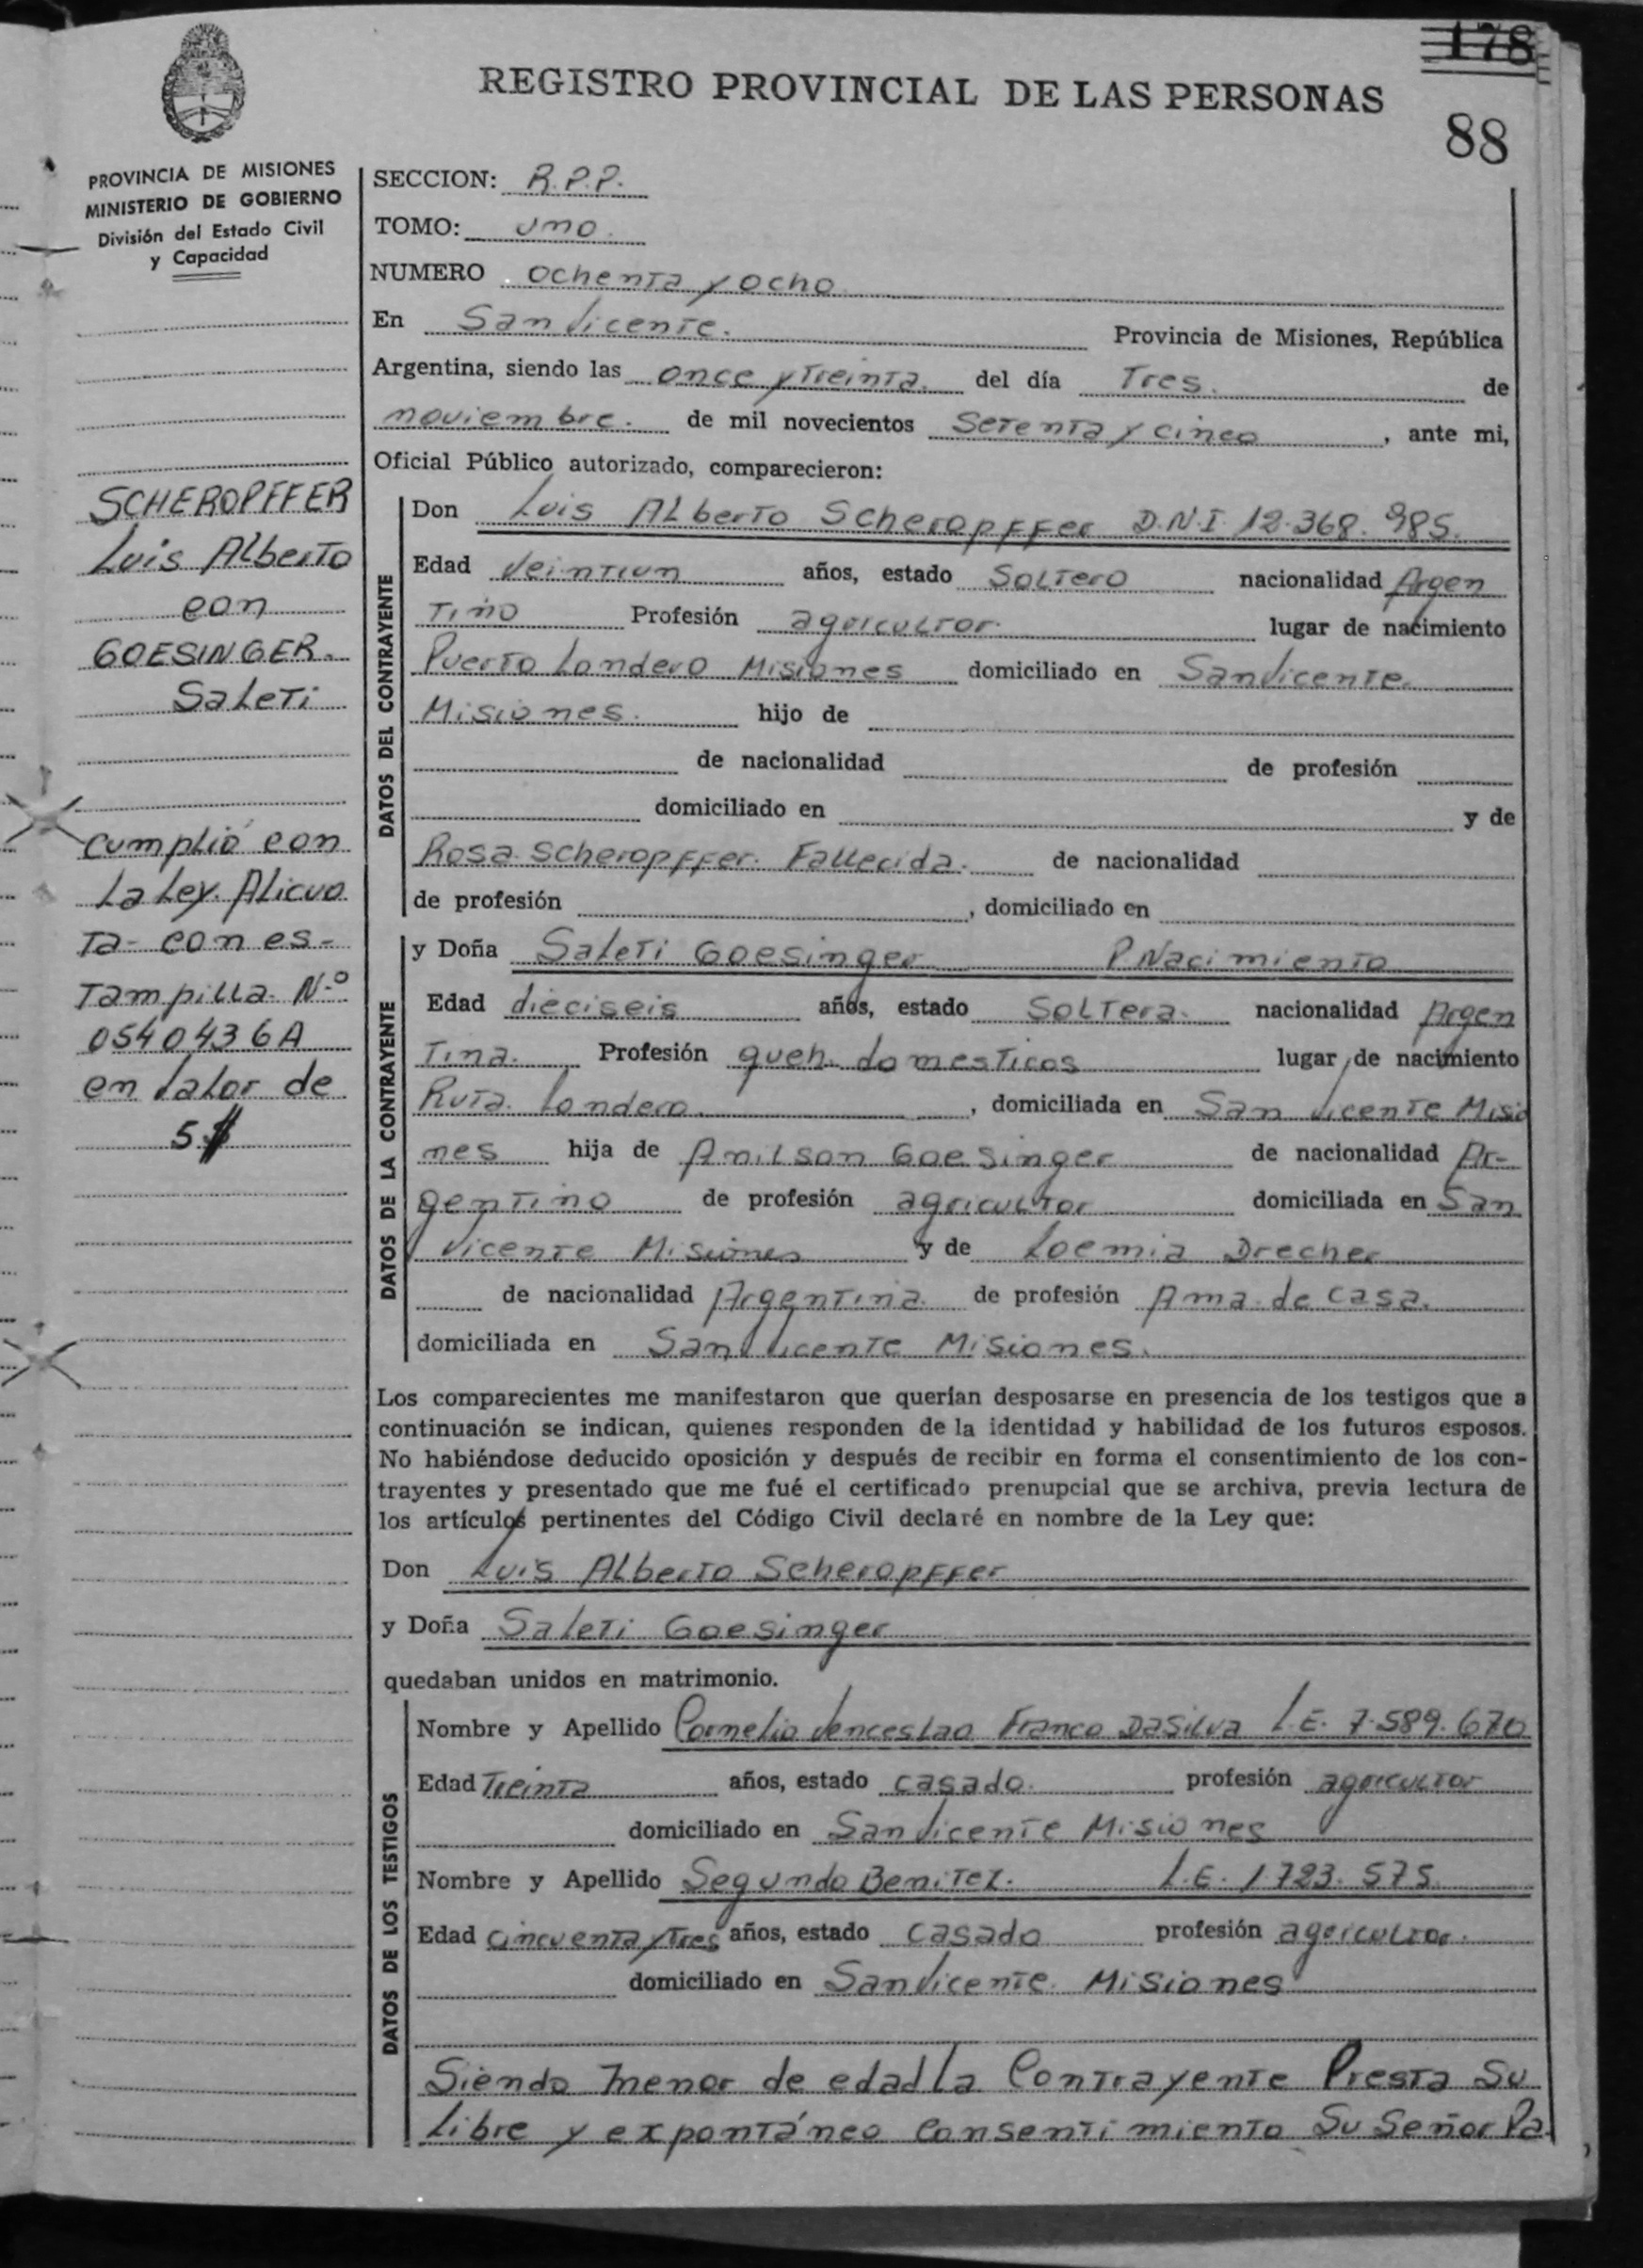 178
REGISTRO PROVINCIAL DE LAS PERSONAS
88
PROVINCIA DE MISIONES
MINISTERIO DE GOBIERNO
División del Estado Civil
y Capacidad
SCHEROPFFER
Luis Alberto
con
GOESINGER.
Saleti
cumplió con
la Ley. Alicuo
ta- con es-
tampilla. N.º
0540436A
en valor de
5$
SECCION: R.P.P.
TOMO: Uno.
NUMERO ochenta y ocho
En San Vicente. Provincia de Misiones, República
Argentina, siendo las once y treinta. del día Tres. de
noviembre. de mil novecientos Setenta y cinco, ante mi,
Oficial Público autorizado, comparecieron:
DATOS DEL CONTRAYENTE
Don Luis Alberto Scheropffer D.N.I. 12.368.985.
Edad Veintiun años, estado Soltero nacionalidad Argen
tino Profesión agricultor. lugar de nacimiento
Puerto Londero Misiones domiciliado en San Vicente.
Misiones. hijo de
de nacionalidad de profesión
domiciliado en y de
Rosa Scheropffer. Fallecida. de nacionalidad
de profesión , domiciliado en
DATOS DE LA CONTRAYENTE
y Doña Saleti Goesinger P. Nacimiento
Edad dieciseis años, estado Soltera. nacionalidad Argen
tina. Profesión queh. domesticos lugar de nacimiento
Ruta Londero , domiciliada en San Vicente Misio
nes hija de Anilson Goesinger de nacionalidad Ar-
gentino de profesión agricultor domiciliada en San
Vicente Misiones y de Loemia Drecher
de nacionalidad Argentina. de profesión Ama de casa.
domiciliada en San Vicente Misiones.
Los comparecientes me manifestaron que querían desposarse en presencia de los testigos que a
continuación se indican, quienes responden de la identidad y habilidad de los futuros esposos.
No habiéndose deducido oposición y después de recibir en forma el consentimiento de los con-
trayentes y presentado que me fué el certificado prenupcial que se archiva, previa lectura de
los artículos pertinentes del Código Civil declaré en nombre de la Ley que:
Don Luis Alberto Scheropffer
y Doña Saleti Goesinger
quedaban unidos en matrimonio.
DATOS DE LOS TESTIGOS
Nombre y Apellido Cornelio Venceslao Franco DaSilva L.E. 7.589.670
Edad Treinta años, estado casado. profesión agricultor
domiciliado en San Vicente Misiones
Nombre y Apellido Segundo Benitez. L.E. 1.723.575
Edad cincuenta y tres años, estado casado profesión agricultor.
domiciliado en San Vicente. Misiones
Siendo menor de edad la Contrayente Presta Su
libre y expontáneo Consentimiento Su Señor Pa